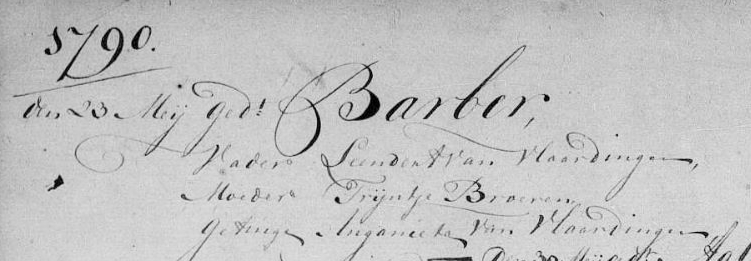 1790.
den 23 Meij Ged: Barber,
Vader Leendert Van Vlaardingen,
Moeder Trijntje Broeren
Getuige Anganieta Van Vlaardingen,
Den 30 Meij